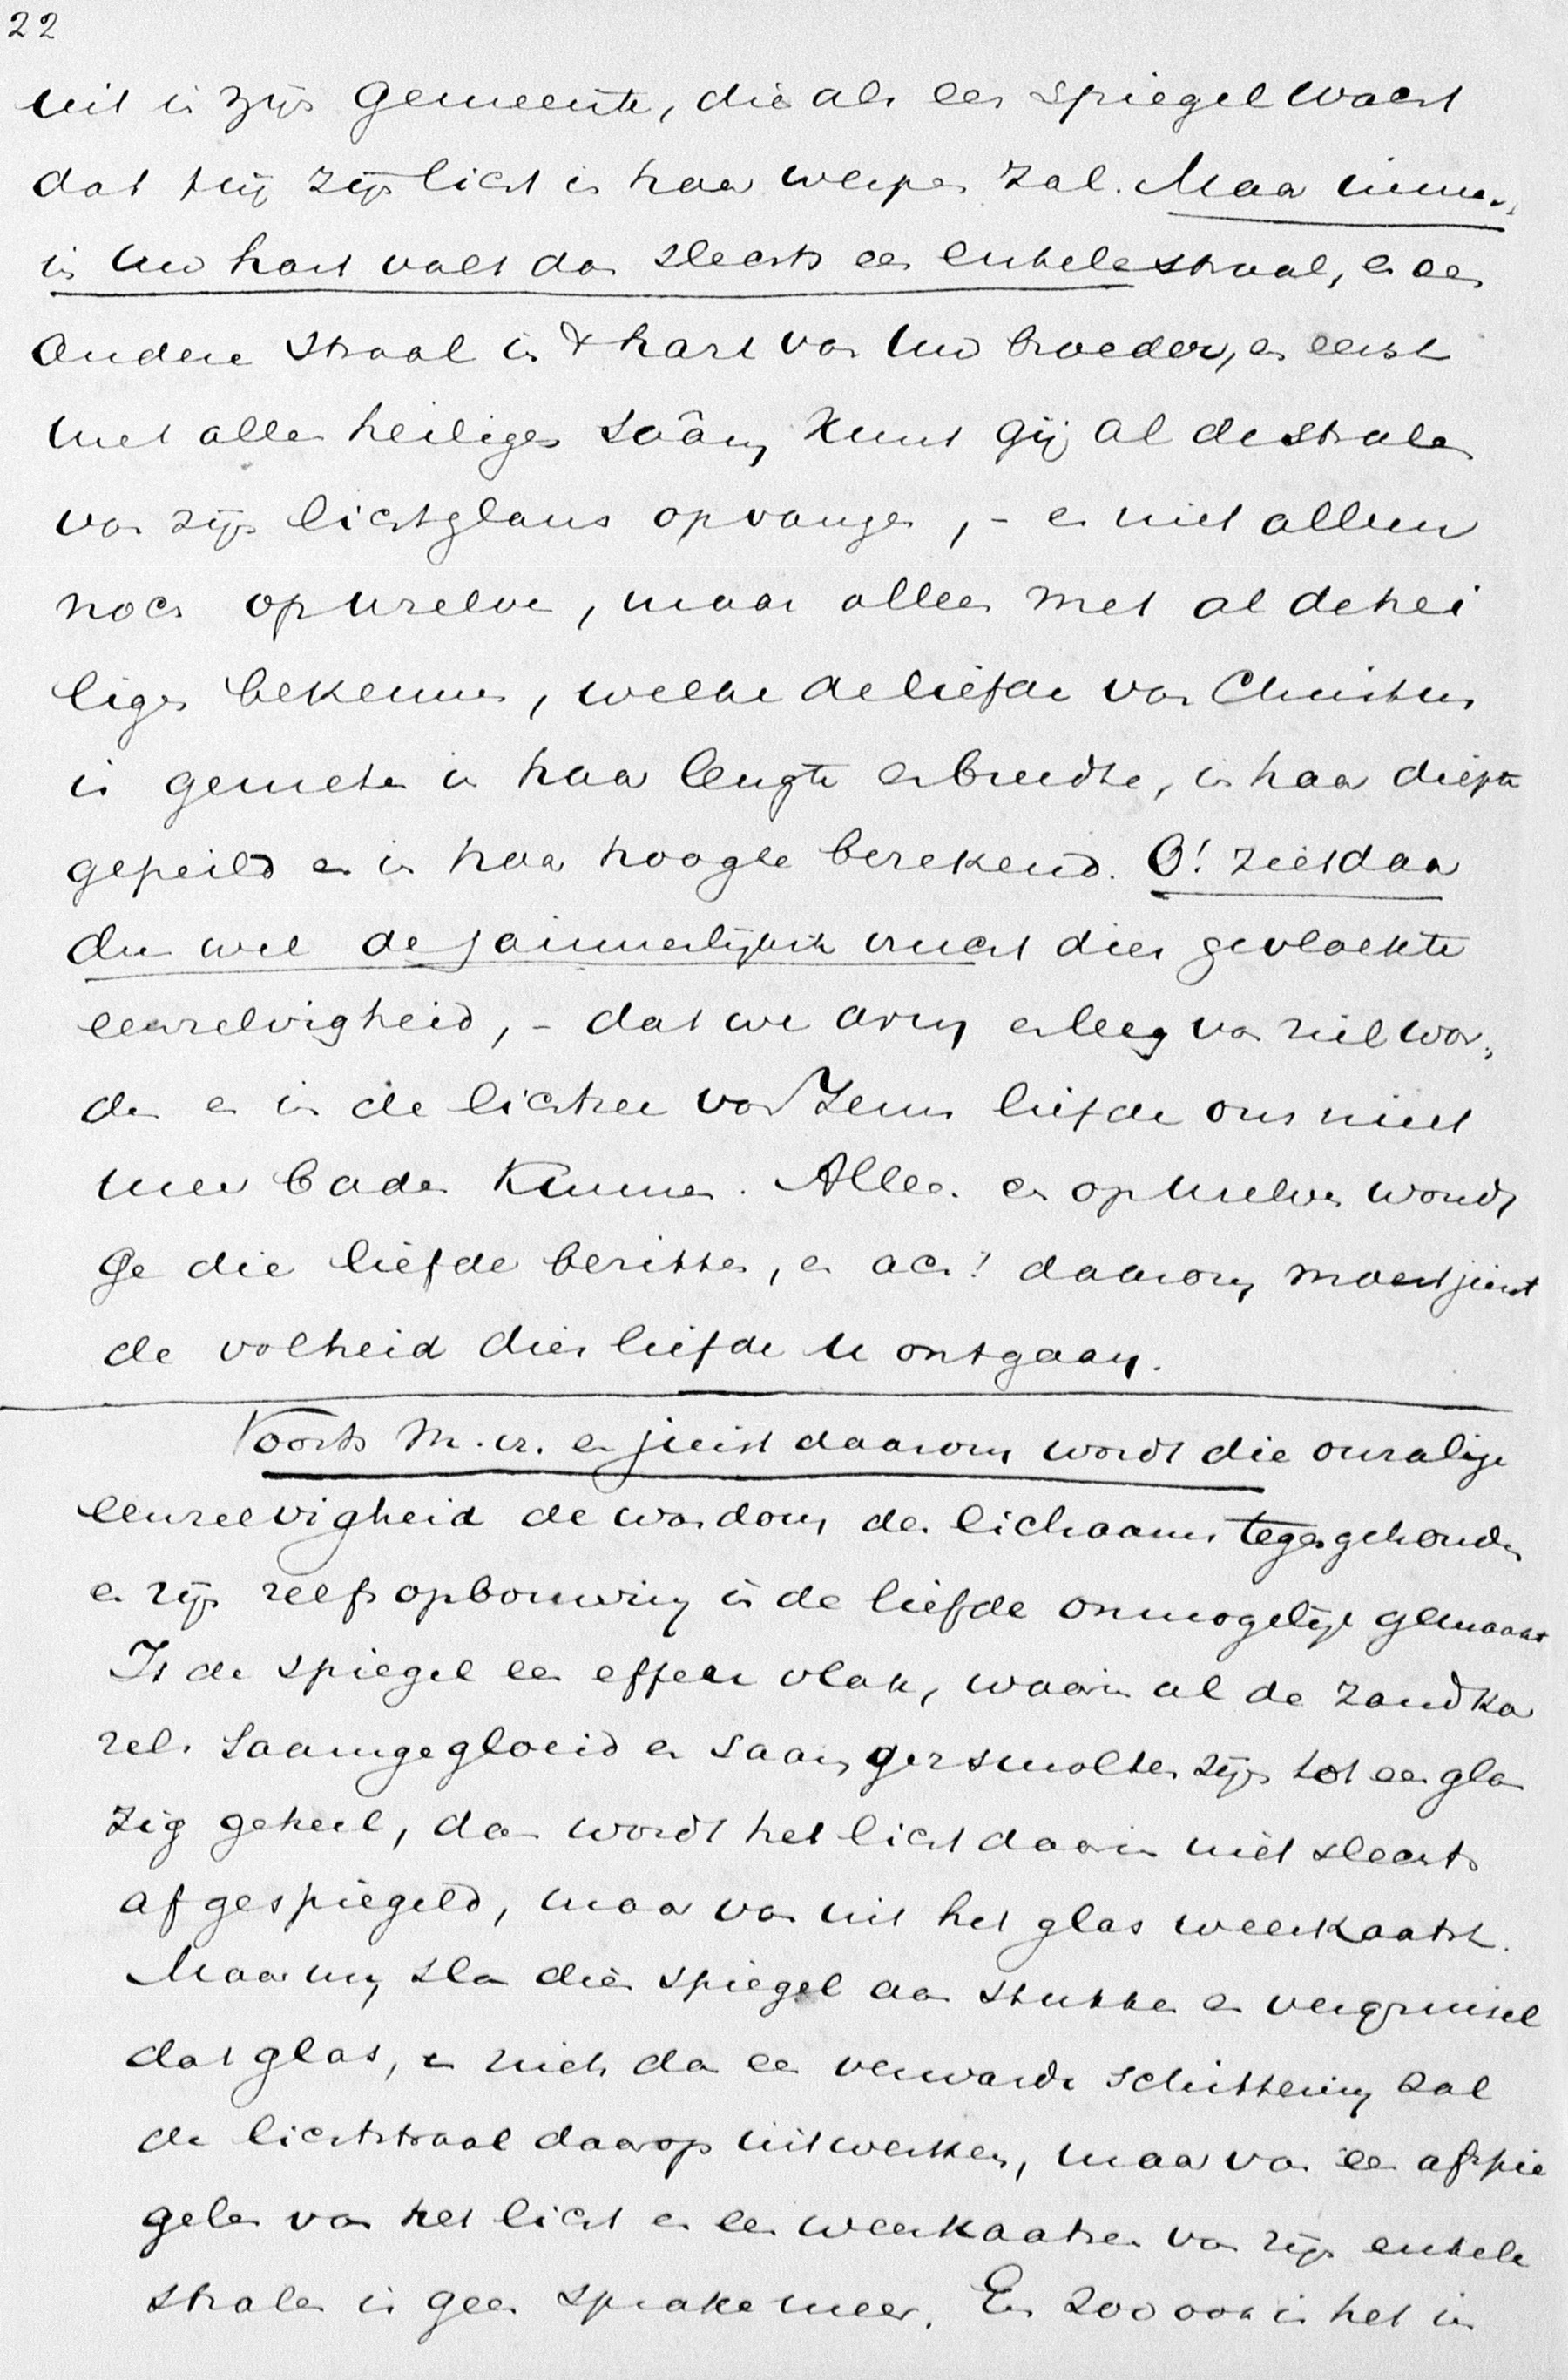 22
uit in zijn Gemeente, die als een spiegel wacht
dat hij zijn licht in haar werpen zal. Maar immers,
in uw hart valt dan slechts een enkele straal, en een
andere straal in 't hart van uw broeder, en eerst
met alle heiligen saâm, kunt gij al de stralen
van zijn lichtglans opvangen, - en niet alleen
noch op uzelve, maar alleen met al de hei
ligen bekennen, welke de liefde van Christus
is gemeten in haar lengte en breedte, in haar diepte
gepeild en in haar hoogte berekend. O! ziet daar
dan wel de jammerlijkste vrucht dier gevloekte
eenzelvigheid, - dat we arm en leeg van ziel wor-
den en in de lichtzee van Jezus liefde ons niet
meer baden kunnen. Alleen en op uzelven woudt
ge die liefde bezitten, en ach! daarom moest juist
de volheid dier liefde u ontgaan.
Voorts m. vr. en juist daarom wordt die onzalige
eenzelvigheid de wasdom des lichaams tegengehouden
en zijn zelfs opbouwing in de liefde onmogelijk gemaakt
Is de spiegel een effen vlak, waarin al de zandko
rels saamgegloeid en saamgesmolten zijn tot een gla
zig geheel, dan wordt het licht daarin niet slechts
afgespiegeld, maar van uit het glas weerkaatst.
Maar nu, sla dien spiegel aan stukken en vergruisel
dat glas, en niets dan een verwarde schittering zal
de lichtstraal daarop uitwerken, maar van een afspie
gelen van het licht en een weerkaatsen van zijn enkele
stralen is geen sprake meer. En zoo ook is het in